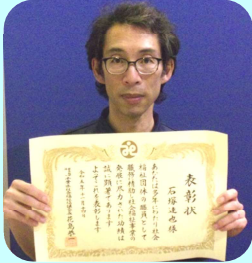 表彰状
石塚達也様
あなたは多年にわたり社会
福祉団体の職員として
職務に精励し社会福祉事業の
発展に尽力された功績は
誠に顕著であります
よってこれを表彰します